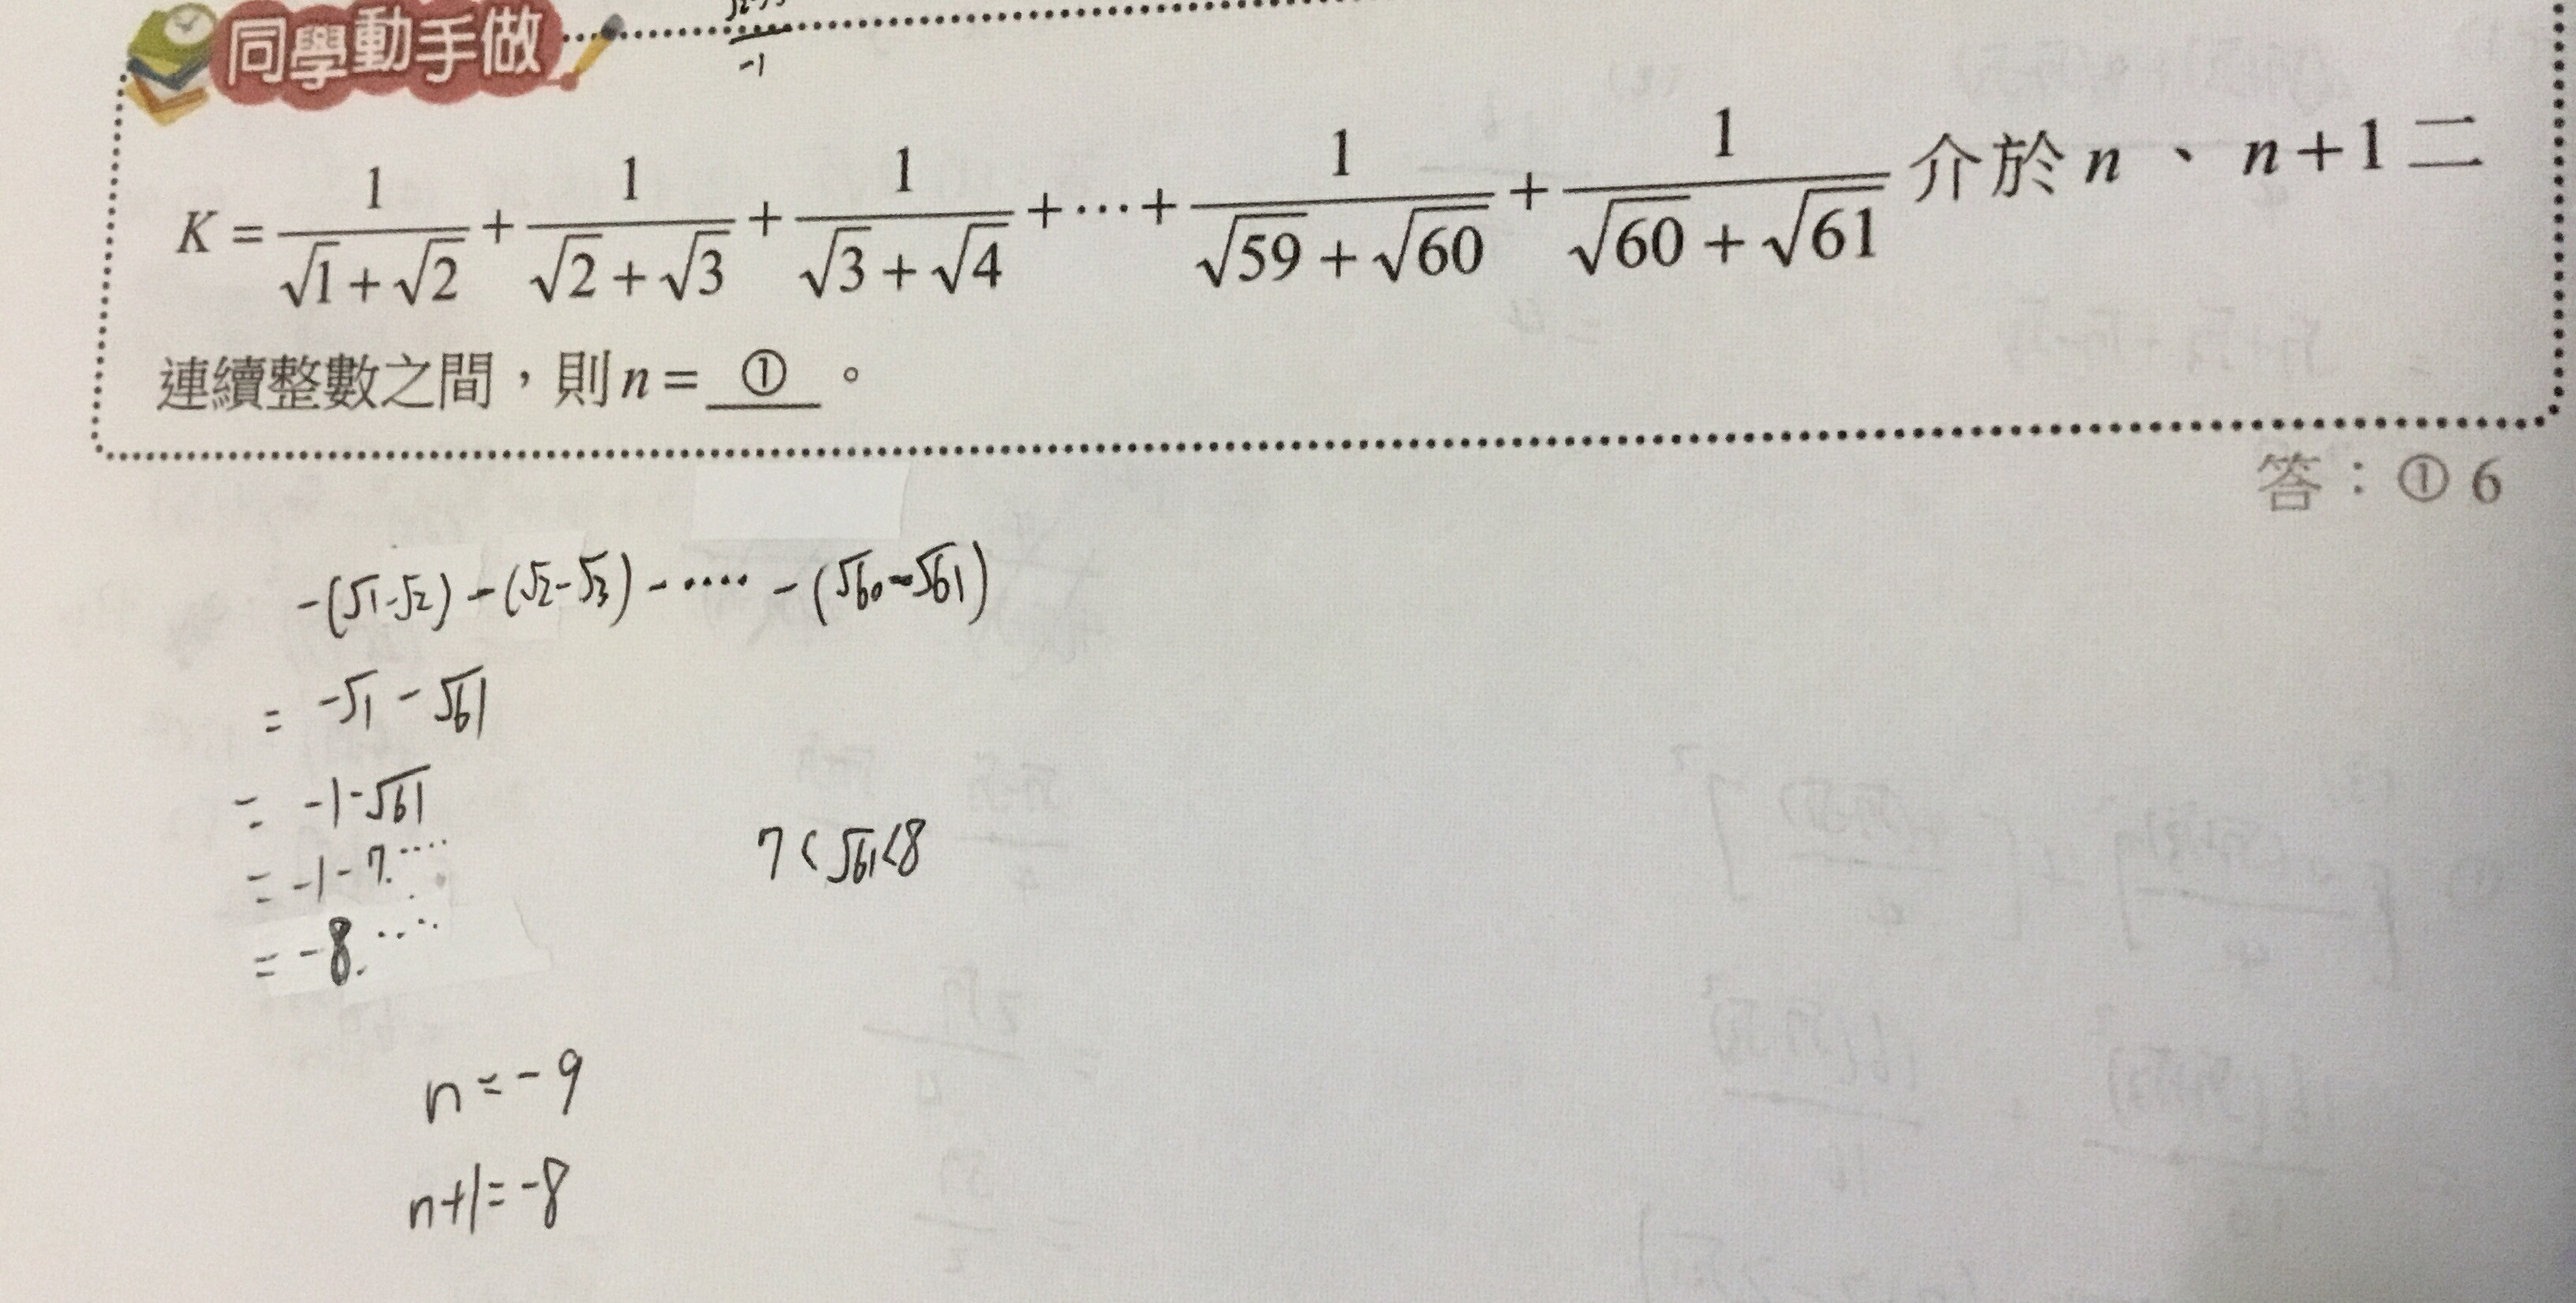 同學動手做
-1
K = 1/(√1+√2) + 1/(√2+√3) + 1/(√3+√4) + ⋯ + 1/(√59+√60) + 1/(√60+√61) 介於 n 、 n+1 二
連續整數之間，則 n = ① 。
答：① 6
-(√1-√2) -(√2-√3) - ‥‥ - (√60-√61)
= -√1 - √61
= -1-√61
= -1-7.‥‥
7<√61<8
= -8.‥‥
n = -9
n+1 = -8